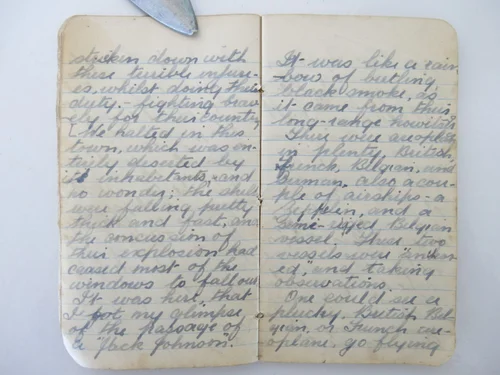 stricken down with
these terrible injuri-
es, whilst doing their
duty - fighting brav-
ely for their country
We halted in this
town, which was en-
tirely deserted by
its inhabitants, and
no wonder; the shells
were falling pretty
thick and fast, and
the concussion of
their explosion had
caused most of the
windows to fall out.
It was here, that
I got my glimpse
of the passage of
a "Jack Johnson".
It was like a rain
bow of
black smoke, as
it came from their
long-range howitzers
There were aeroplanes
in plenty, British,
French, Belgian, and
German. Also a cou-
ple of airships - a
Zeppelin, and a
Belgian
vessel. These two
vessels were
and taking
observations.
One could see a
plucky British, Bel-
gian, or French aer-
oplane, go flying